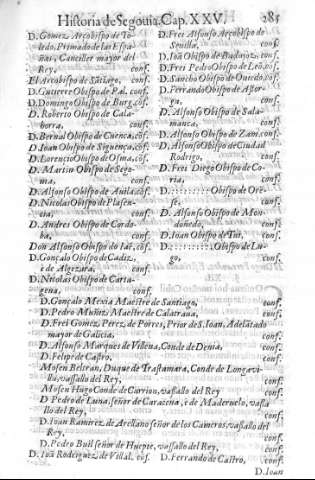 Historia de Segouia. Cap. XXV. 285
D. Gomez Arçobispo de To-
ledo, Primado de las Espa
ñas, Canciller mayor del
Rey, conf.
El Arcobispo de Sãtiago, conf.
D. Gutierre Obispo de Pal. conf.
D. Domingo Obispo de Burg. cõf.
D. Roberto Obispo de Cala-
horra, conf.
D. Bernal Obispo de Cuenca, cõf.
D. Iuan Obispo de Siguença, cõf.
D. Lorencio Obispo de Osma, cõf.
D. Martin Obispo de Sego-
uia, conf.
D. Alfonso Obispo de Auila, cõf.
D. Nicolas Obispo de Plasen-
cia, conf.
D. Andres Obispo de Cordo-
ba, conf.
Don Alfonso Obispo de Iaẽ, cõf.
D. Gonçalo Obispo de Cadiz,
è de Algezira, conf.
D. Nicolas Obispo de Carta-
gena, conf.
D. Frei Alfonso Arçobispo de
Seuilla, conf.
D. Iuã Obispo de Badajoz, conf.
D. Frei Pedro Obispo de Leõ, cõf.
D. Sancho Obispo de Ouiedo, cõf.
D. Ferrando Obispo de Astor-
ga, conf.
D. Alfonso Obispo de Sala-
manca, conf.
D. Alfonso Obispo de Zam. conf.
D. Alfonso Obispo de Ciudad
Rodrigo, conf.
D. Frei Diego Obispo de Co-
ria, conf.
D. ::::::::: Obispo de Ore-
se, conf.
D. Alfonso Obispo de Mon-
doñedo, conf.
D. Iuan Obispo de Tui, conf.
D. ::::::::: Obispo de Lu-
go, conf.
D. Gonçalo Mexia Maestre de Santiago, conf.
D. Pedro Muñiz Maestre de Calatraua, conf.
D. Frei Gomez Perez de Porres, Prior de S. Ioan, Adelãtado
mayor de Galicia, conf.
D. Alfonso Marques de Villena, Conde de Denia, conf.
D. Felipe de Castro, conf.
Mosen Beltran, Duque de Trastamara, Conde de Longavi-
lla, vassallo del Rey, conf.
Mosen Hugo Conde de Carrion, vassallo del Rey conf.
D. Pedro de Luna, señor de Caracena, è de Maderuelo, vasa
llo del Rey, conf.
D. Iuan Ramirez, de Arellano señor de los Cameros, vassallo del
Rey, conf.
D. Pedro Buil señor de Huepte, vassallo del Rey, conf.
D. Iuã Rodriguez, de Villal. cõf. D. Ferrando de Castro, conf.
D. Ioan